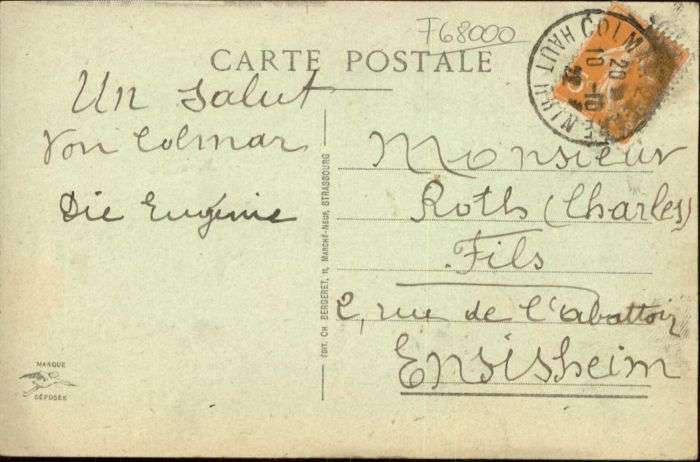 F68000
CARTE POSTALE
Un Salut
Von Colmar
Die Eugénie
Monsieur
Roth (Charles)
Fils
2, rue de l'abattoir
Ensisheim
ÉDIT. CH. BERGERET, 11, MARCHÉ-NEUF, STRASBOURG
MARQUE
DÉPOSÉE
COLMAR
HAUT-RHIN
20
10 -10